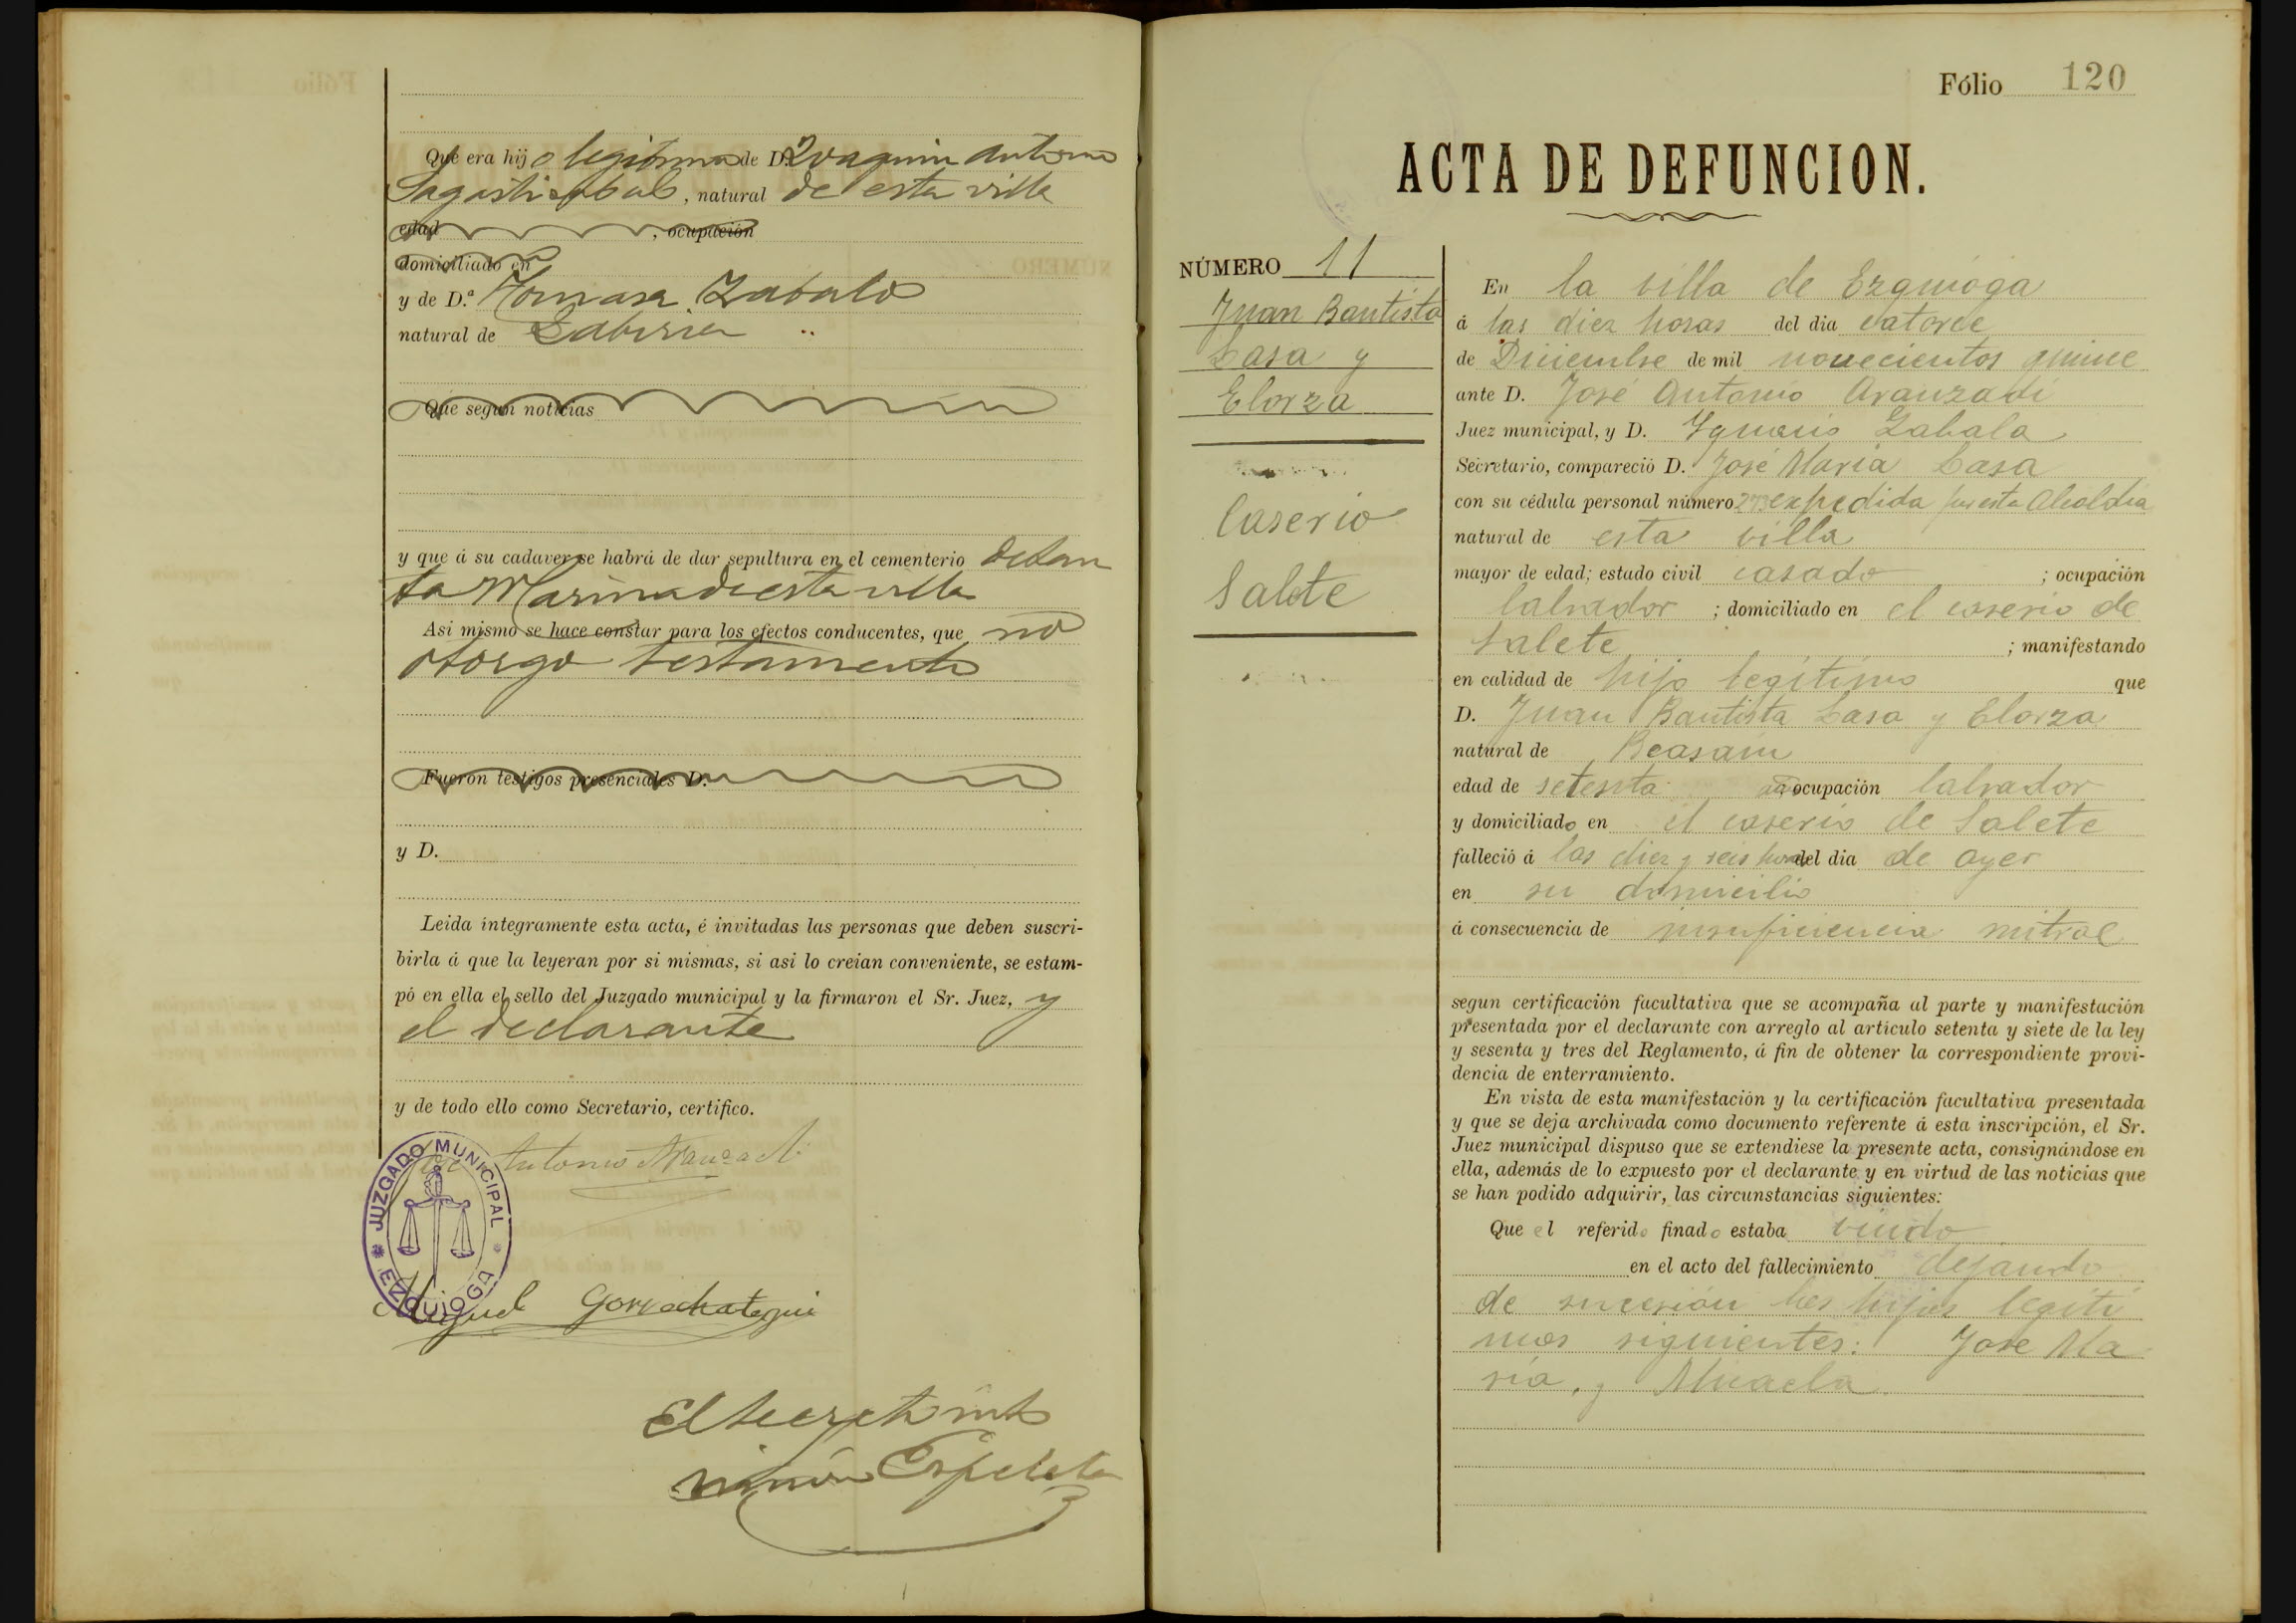 Que era hijo legitimo de D. Joaquin Antonio
Sagastizabal, natural de esta villa
edad , ocupación
domiciliado en
y de D.ª Tomasa Zabalo
natural de Gabiria
Que segun noticias
y que á su cadaver se habrá de dar sepultura en el cementerio de San
ta Marina de esta villa
Asi mismo se hace constar para los efectos conducentes, que no
otorgo testamento
Fueron testigos presenciales D.
y D.
Leida íntegramente esta acta, é invitadas las personas que deben suscri-
birla á que la leyeran por si mismas, si asi lo creian conveniente, se estam-
pó en ella el sello del Juzgado municipal y la firmaron el Sr. Juez, y
el declarante
y de todo ello como Secretario, certifico.
José Antonio Aranzadi
JUZGADO MUNICIPAL
EZQUIOGA
Miguel Gorrochategui
El Secretario
Ramón Ezpeleta
Fólio 120
ACTA DE DEFUNCION.
NÚMERO 11
Juan Bautista
Lasa y
Elorza
Caserio
Salete
En la villa de Ezquioga
á las diez horas del dia catorce
de Diciembre de mil novecientos quince
ante D. José Antonio Aranzadi
Juez municipal, y D. Ygnacio Zabala
Secretario, compareció D. José Maria Lasa
con su cédula personal número expedida por esta Alcaldia
natural de esta villa
mayor de edad; estado civil casado ; ocupación
labrador ; domiciliado en el caserio de
Salete ; manifestando
en calidad de hijo legítimo que
D. Juan Bautista Lasa y Elorza
natural de Beasain
edad de setenta ocupación labrador
y domiciliado en el caserio de Salete
falleció á las diez y seis horas del dia de ayer
en su domicilio
á consecuencia de insuficiencia mitral
segun certificación facultativa que se acompaña al parte y manifestación
presentada por el declarante con arreglo al artículo setenta y siete de la ley
y sesenta y tres del Reglamento, á fin de obtener la correspondiente provi-
dencia de enterramiento.
En vista de esta manifestación y la certificación facultativa presentada
y que se deja archivada como documento referente á esta inscripción, el Sr.
Juez municipal dispuso que se extendiese la presente acta, consignándose en
ella, además de lo expuesto por el declarante y en virtud de las noticias que
se han podido adquirir, las circunstancias siguientes:
Que el referido finado estaba viudo
en el acto del fallecimiento dejando
de sucesión los hijos legiti
mos siguientes: José Ma
ria, y Micaela.